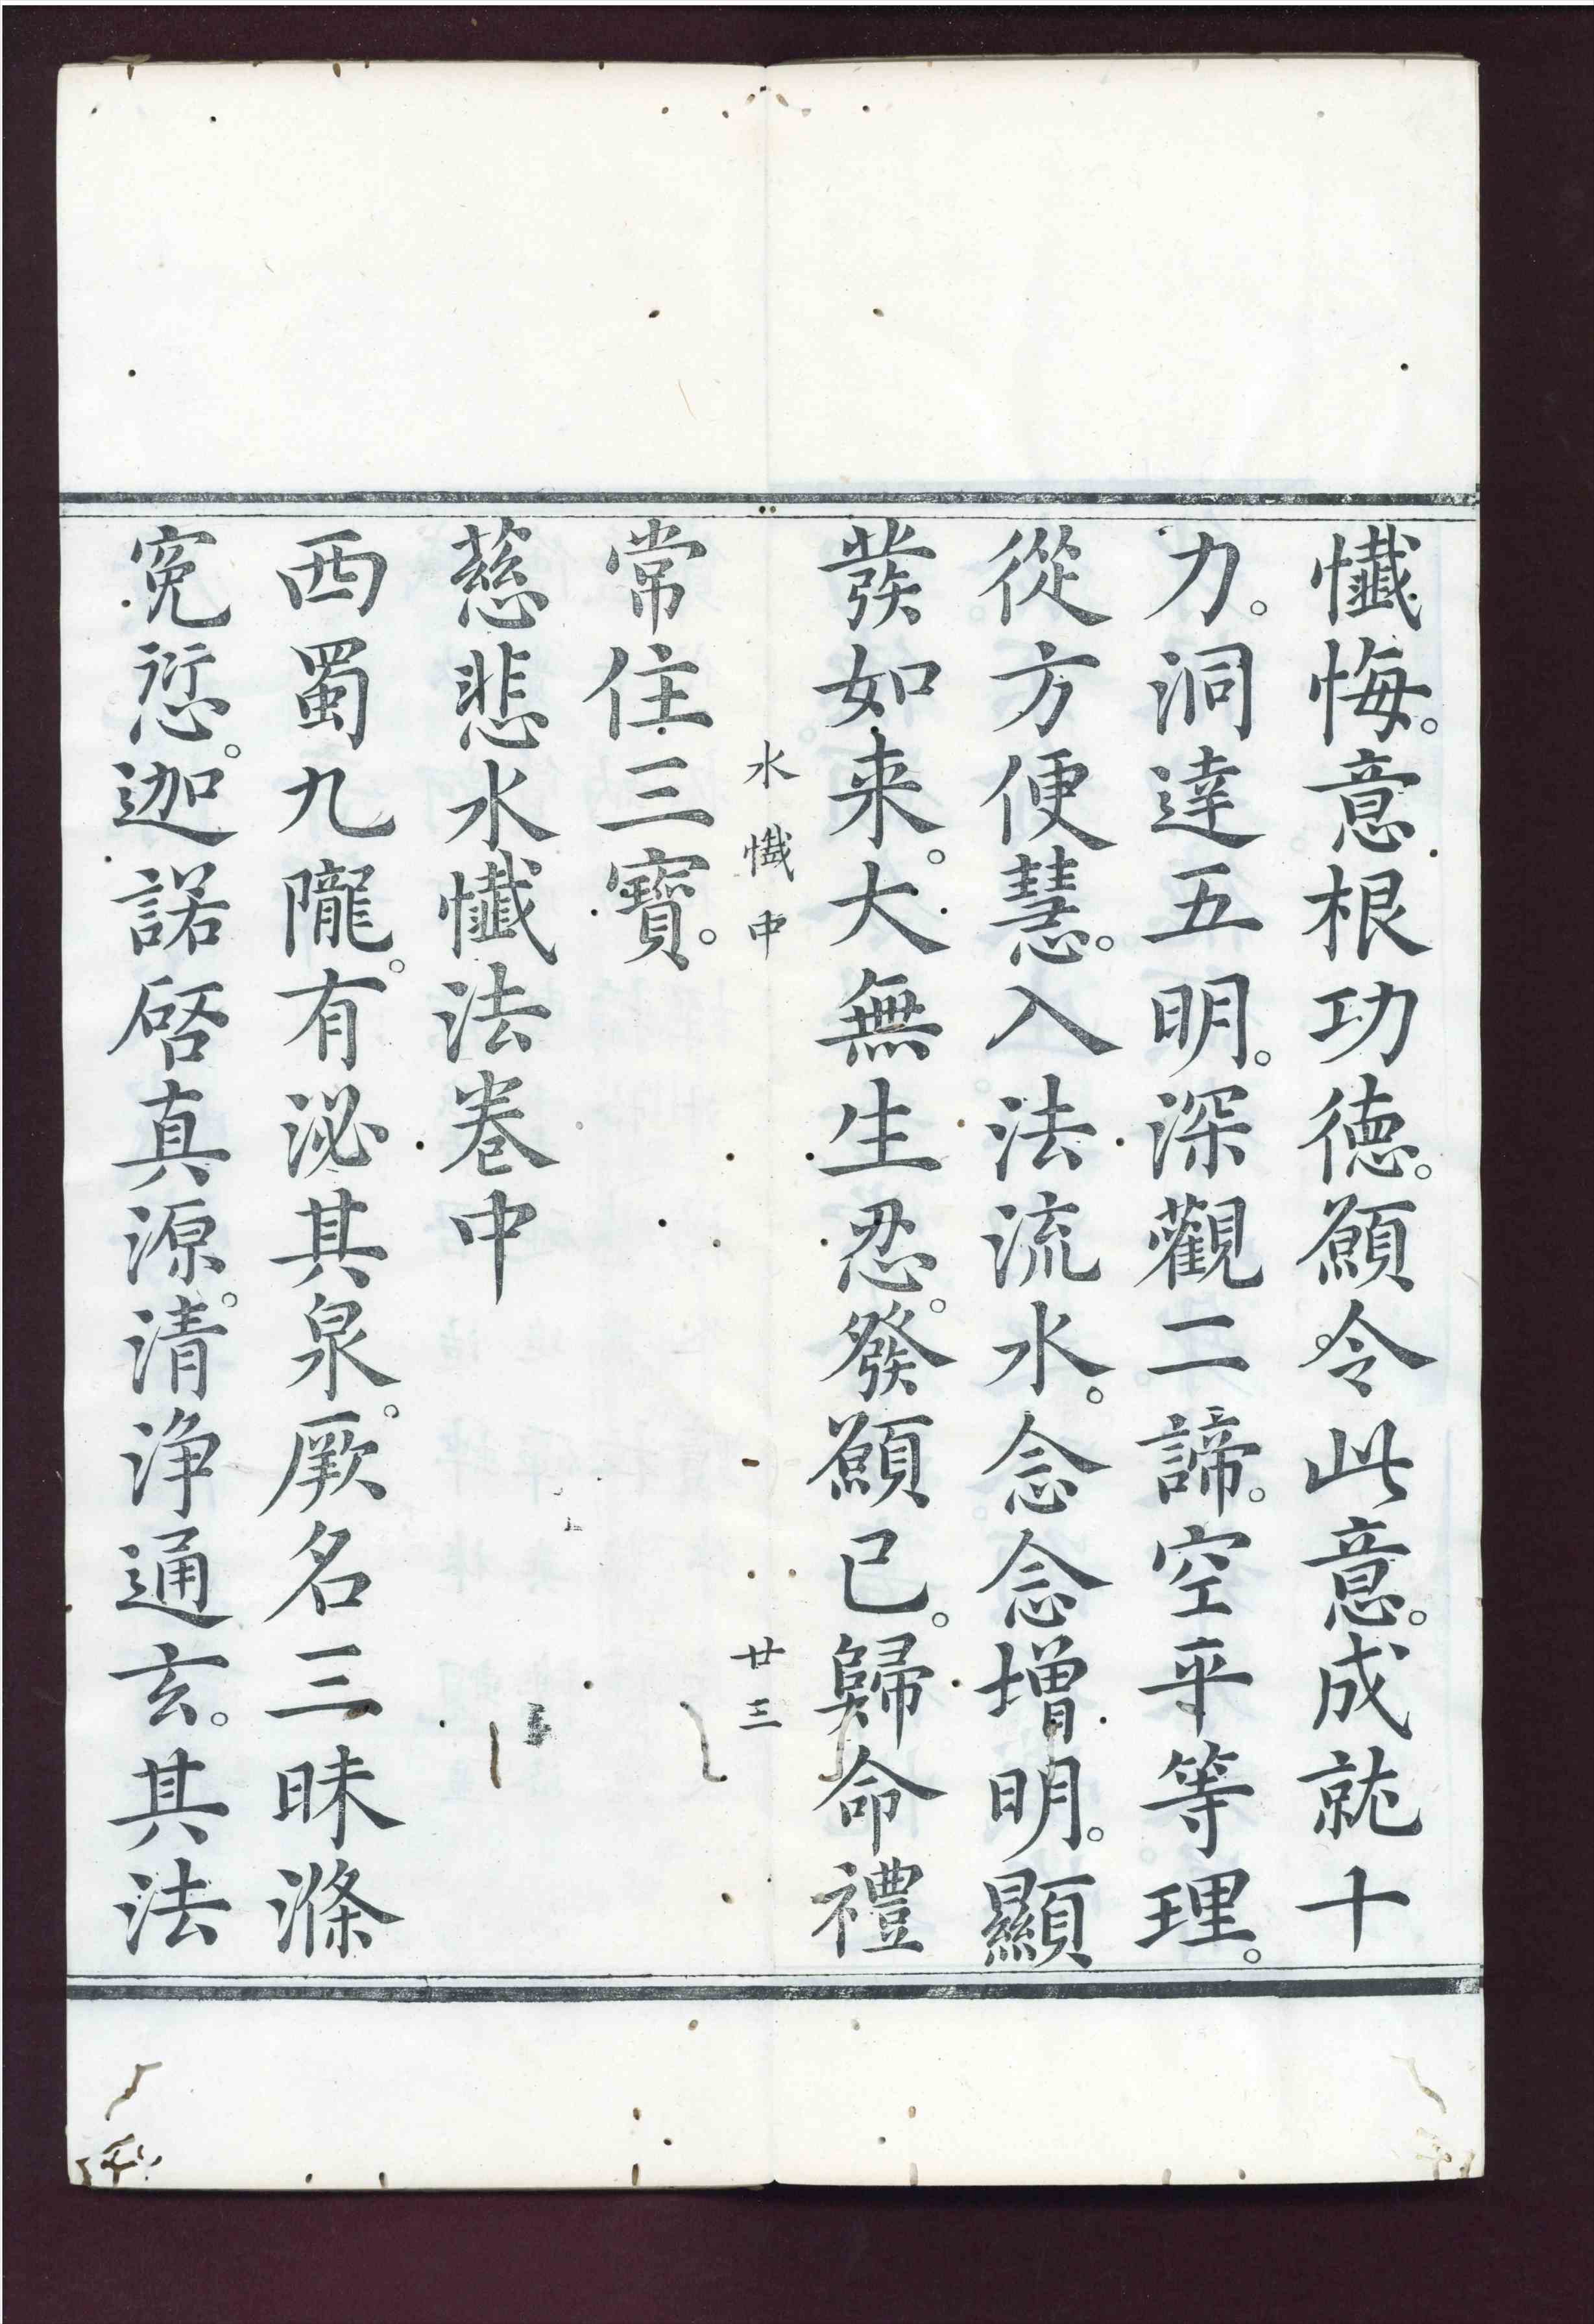 懺悔。意根功德。願令此意。成就十
力。洞達五明。深觀二諦。空平等理。
從方便慧。入法流水。念念增明。顯
發如来。大無生忍。發願已。歸命禮
水懺中
廿三
常住三寶。
慈悲水懺法卷中
西蜀九隴。有泌其泉。厥名三昧滌
寃愆。迦諾啓真源。清淨通玄。其法